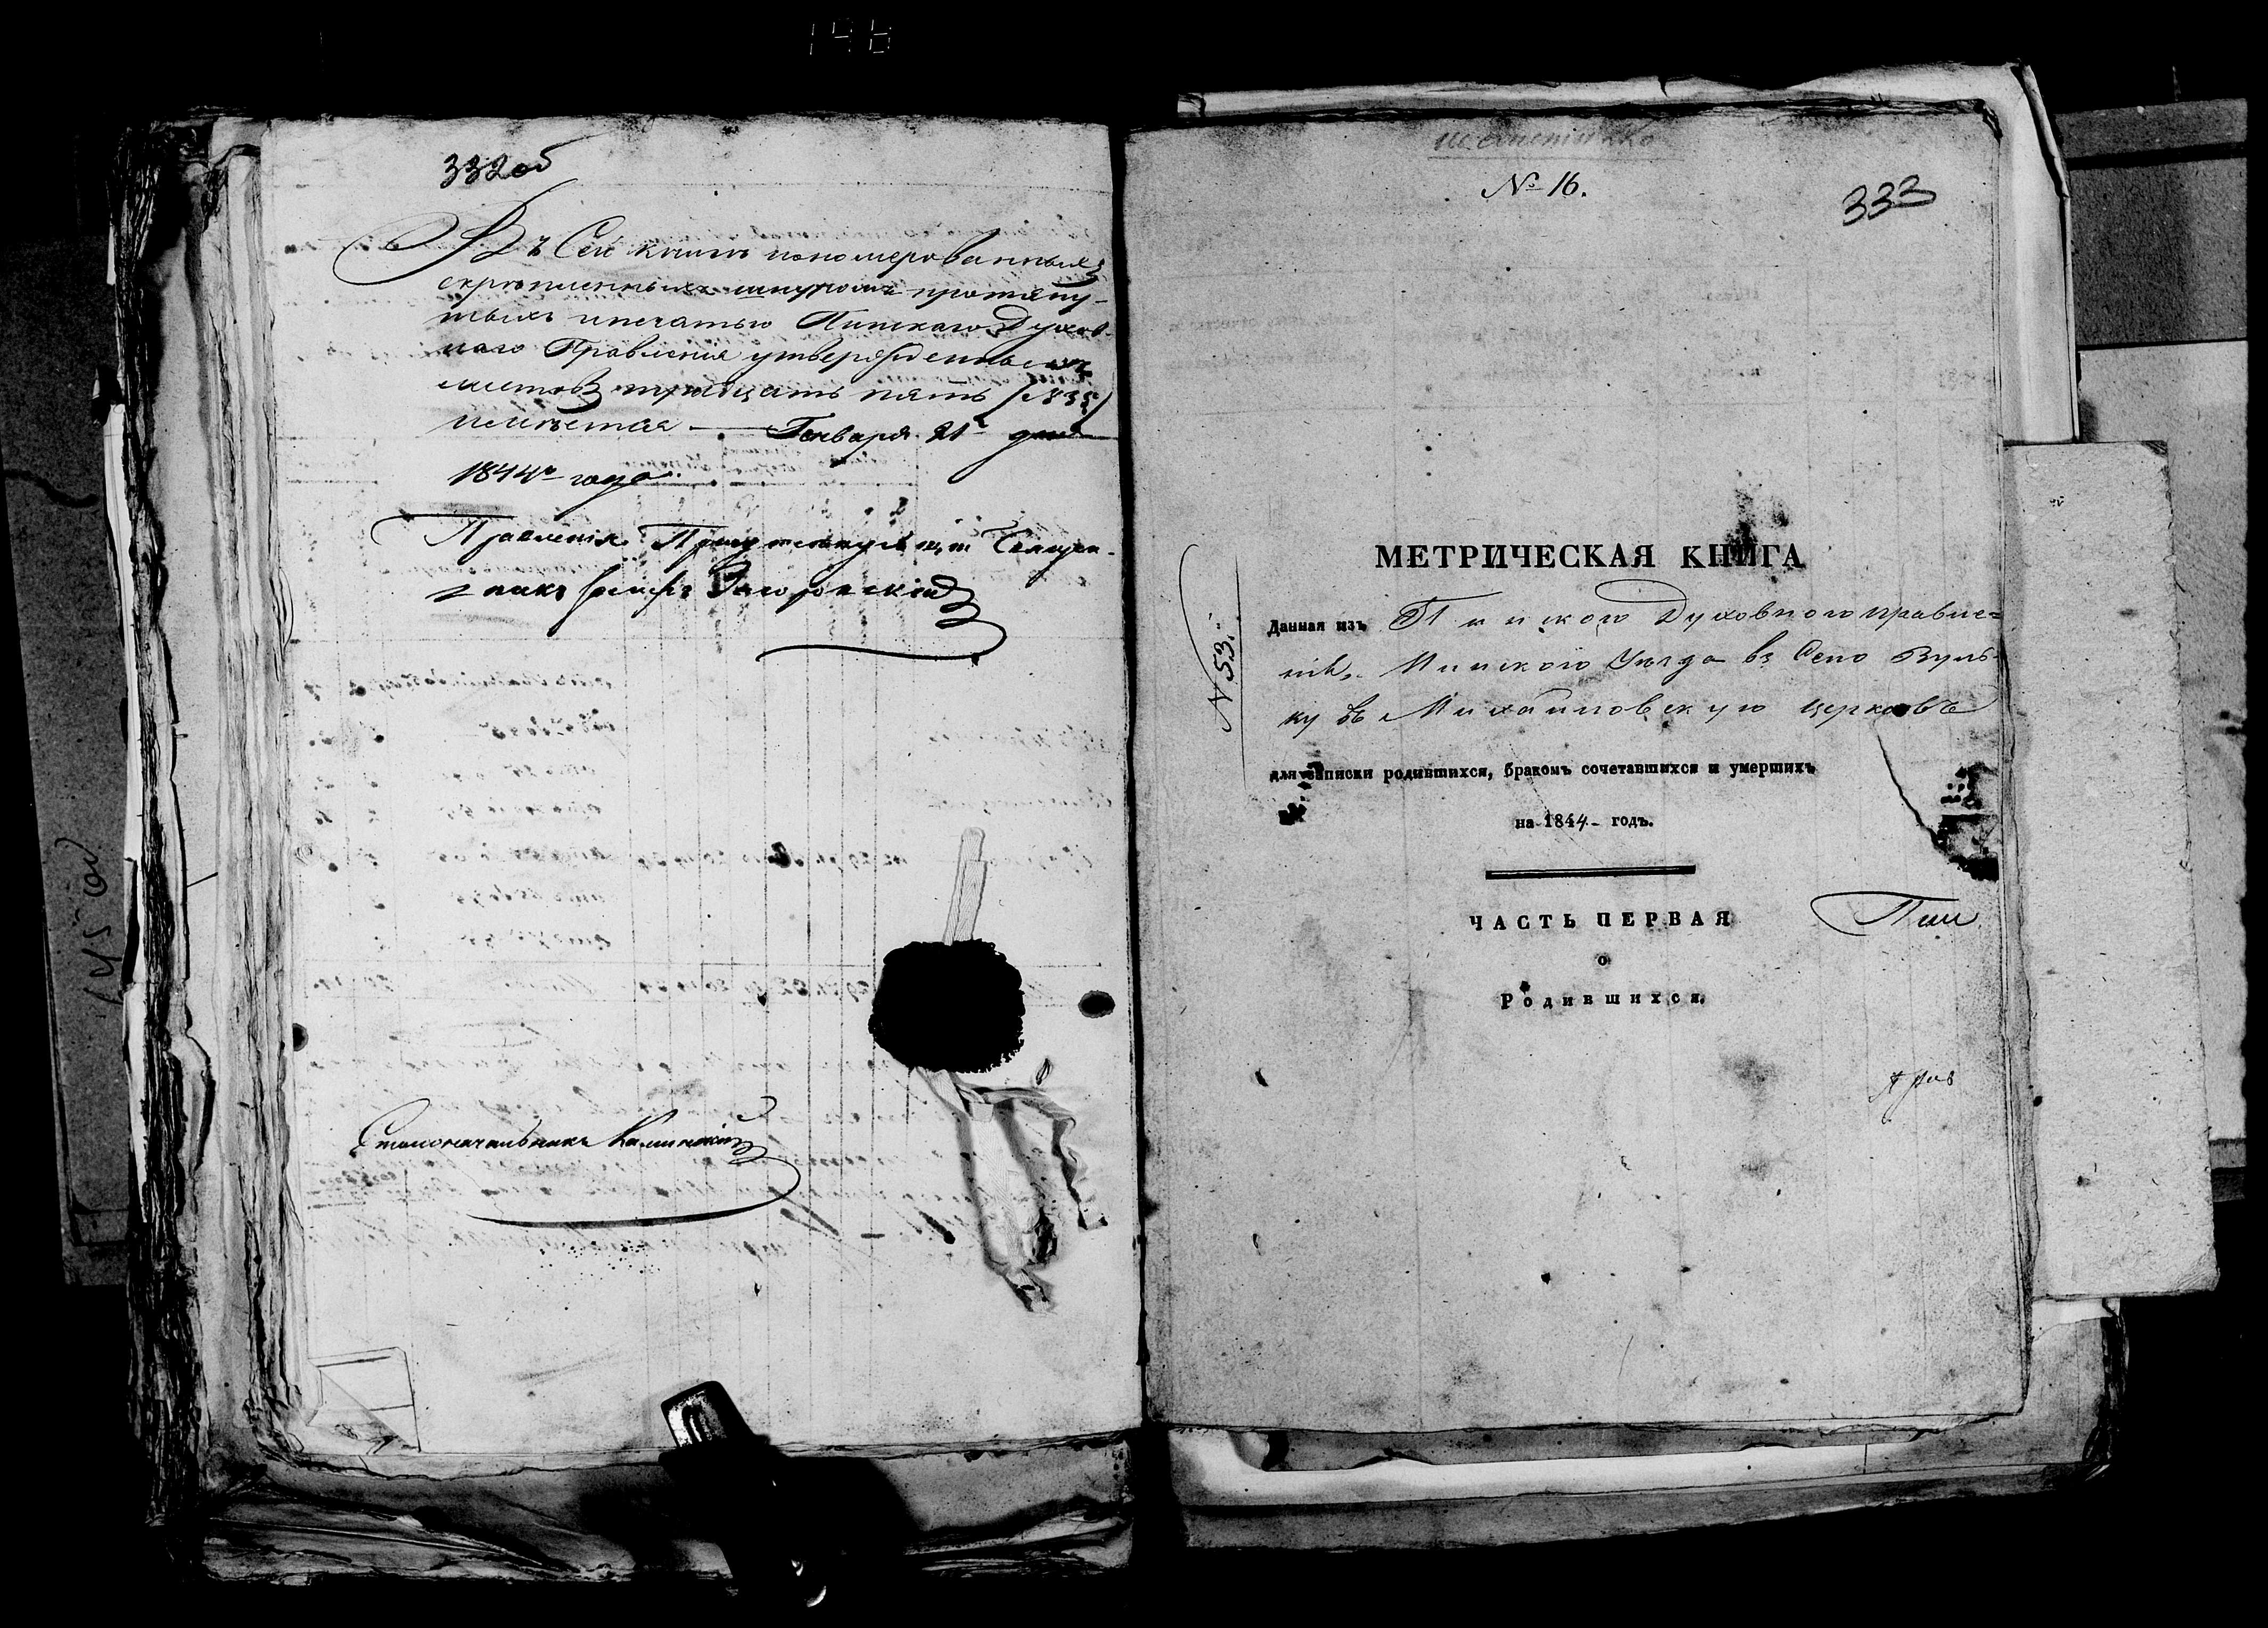 332 об
Въ Сей книгѣ нономерованныхъ
скрѣпленныхъ шнуромъ протяну-
тыхъ и печатью Пинскаго Духов-
наго Правления утвержденныхъ
листовъ тридцать пять /№ 35/
имѣется — Генваря 21го дня
1844го года.
Правленія Присутствующій Священ-
никъ
Столоначальникъ Калинскій
№ 16.
333
№ 53.
МЕТРИЧЕСКАЯ КНИГА
Данная изъ Пинскаго Духовного правле=
нія, Минского Уѣзда въ Село Вуль-
ку въ Михайловскую церковь
для записки родившихся, бракомъ сочетавшихся и умершихъ
на 1844 годъ.
ЧАСТЬ ПЕРВАЯ
о
Родившихся.